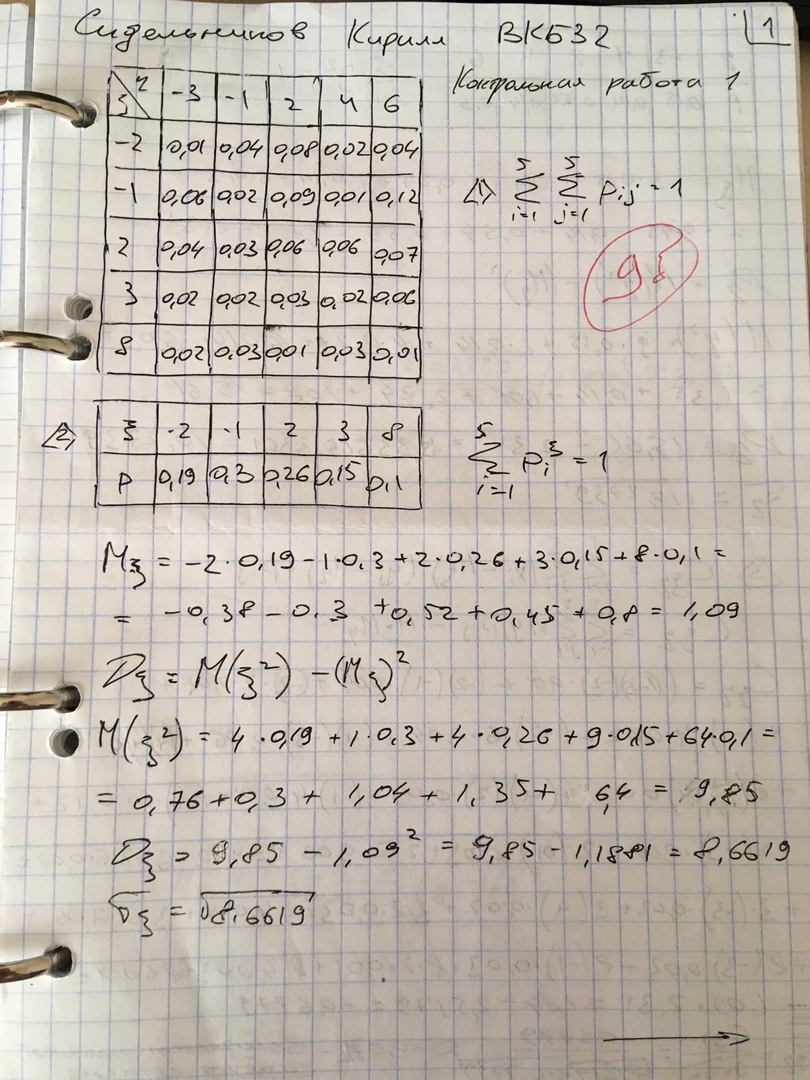 Сидельников Кирилл ВКБ32 1
Контрольная работа 1
ξ \ η -3 -1 2 4 6
-2 0,01 0,04 0,08 0,02 0,04
-1 0,06 0,02 0,09 0,01 0,12
2 0,04 0,03 0,06 0,06 0,07
3 0,02 0,02 0,03 0,02 0,06
8 0,02 0,03 0,01 0,03 0,01
<1> ∑_{i=1}^{5} ∑_{j=1}^{5} p_{ij} = 1
<2> ξ -2 -1 2 3 8
P 0,19 0,3 0,26 0,15 0,1
∑_{i=1}^{5} p_i^ξ = 1
Mξ = -2·0,19 - 1·0,3 + 2·0,26 + 3·0,15 + 8·0,1 =
= -0,38 - 0,3 + 0,52 + 0,45 + 0,8 = 1,09
Dξ = M(ξ²) - (Mξ)²
M(ξ²) = 4·0,19 + 1·0,3 + 4·0,26 + 9·0,15 + 64·0,1 =
= 0,76 + 0,3 + 1,04 + 1,35 + 6,4 = 9,85
Dξ = 9,85 - 1,09² = 9,85 - 1,1881 = 8,6619
σξ = √8,6619